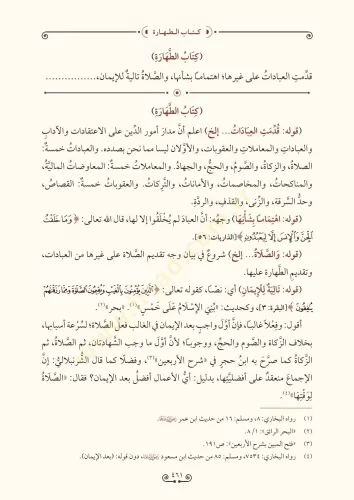 كتاب الطهارة
(كِتَابُ الطَّهَارَةِ)
قدِّمتِ العباداتُ على غيرها؛ اهتمامًا بشأنها، والصَّلاةُ تاليةٌ للإيمان،................
(كِتَابُ الطَّهَارَةِ)
(قوله: قُدِّمَتِ العِبَادَاتُ... إلخ) اعلم أنَّ مدارَ أمورِ الدِّين على الاعتقادات والآداب
والعباداتِ والمعاملاتِ والعقوبات، والأوَّلان ليسا مما نحن بصدده. والعباداتُ خمسةٌ:
الصلاةُ، والزكاةُ، والصَّومُ، والحجُّ، والجهادُ. والمعاملاتُ خمسةٌ: المعاوضاتُ الماليَّةُ،
والمناكحاتُ، والمخاصماتُ، والأماناتُ، والتَّرِكاتُ. والعقوباتُ خمسةٌ: القصاصُ،
وحدُّ السَّرقة، والزِّنى، والقذفِ، والردَّةِ.
(قوله: اهْتِمَامًا بِشَأْنِهَا) وجهُه: أنَّ العبادَ لم يُخْلَقُوا إلا لها، قال الله تعالى: ﴿وَمَا خَلَقْتُ
ٱلْجِنَّ وَٱلْإِنسَ إِلَّا لِيَعْبُدُونِ﴾ [الذاريات: ٥٦].
(قوله: وَالصَّلَاةُ... إلخ) شروعٌ في بيان وجه تقديم الصَّلاة على غيرها من العبادات،
وتقديمِ الطَّهارة عليها.
(قوله: تَالِيَةٌ لِلْإِيمَانِ) أي: نصًّا، كقوله تعالى: ﴿ٱلَّذِينَ يُؤْمِنُونَ بِٱلْغَيْبِ وَيُقِيمُونَ ٱلصَّلَوٰةَ وَمِمَّا رَزَقْنَٰهُمْ
يُنفِقُونَ﴾ [البقرة: ٣]، وكحديث: «بُنِيَ الإِسْلَامُ عَلَى خَمْسٍ»(١). «بحر»(٢).
أقول: وفعلًا غالبًا، فإنَّ أوَّلَ واجبٍ بعد الإيمان في الغالب فعلُ الصَّلاة؛ لسُرعة أسبابها،
بخلاف الزَّكاة والصَّومِ والحجِّ، ووجوبًا؛ لأنَّ أوَّلَ ما وجب الشَّهادتان، ثم الصَّلاةُ، ثم
الزَّكاةُ كما صرَّح به ابنُ حجرٍ في «شرح الأربعين»(٣)، وفضلًا كما قال الشُّرنبلاليُّ: إنَّ
الإجماعَ منعقدٌ على أفضليَّتِها، بدليل: أيُّ الأعمال أفضلُ بعد الإيمان؟ فقال: «الصَّلَاةُ
لِوَقْتِهَا»(٤).
(١) رواه البخاري: ٨، ومسلم: ١٦ من حديث ابن عمر
(٢) «البحر الرائق»: ٨/١.
(٣) «فتح المبين بشرح الأربعين»: ص١٩١.
(٤) رواه البخاري: ٧٥٣٤، ومسلم: ٨٥ من حديث ابن مسعود ، دون قوله: (بعد الإيمان).
٤٦١